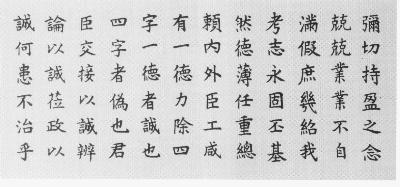 彌切持盈之念
兢兢業業不自
滿假庶幾紹我
考志永固丕基
然德薄任重總
賴內外臣工咸
有一德力除四
字一德者誠也
四字者偽也君
臣交接以誠辨
論以誠莅政以
誠何患不治乎